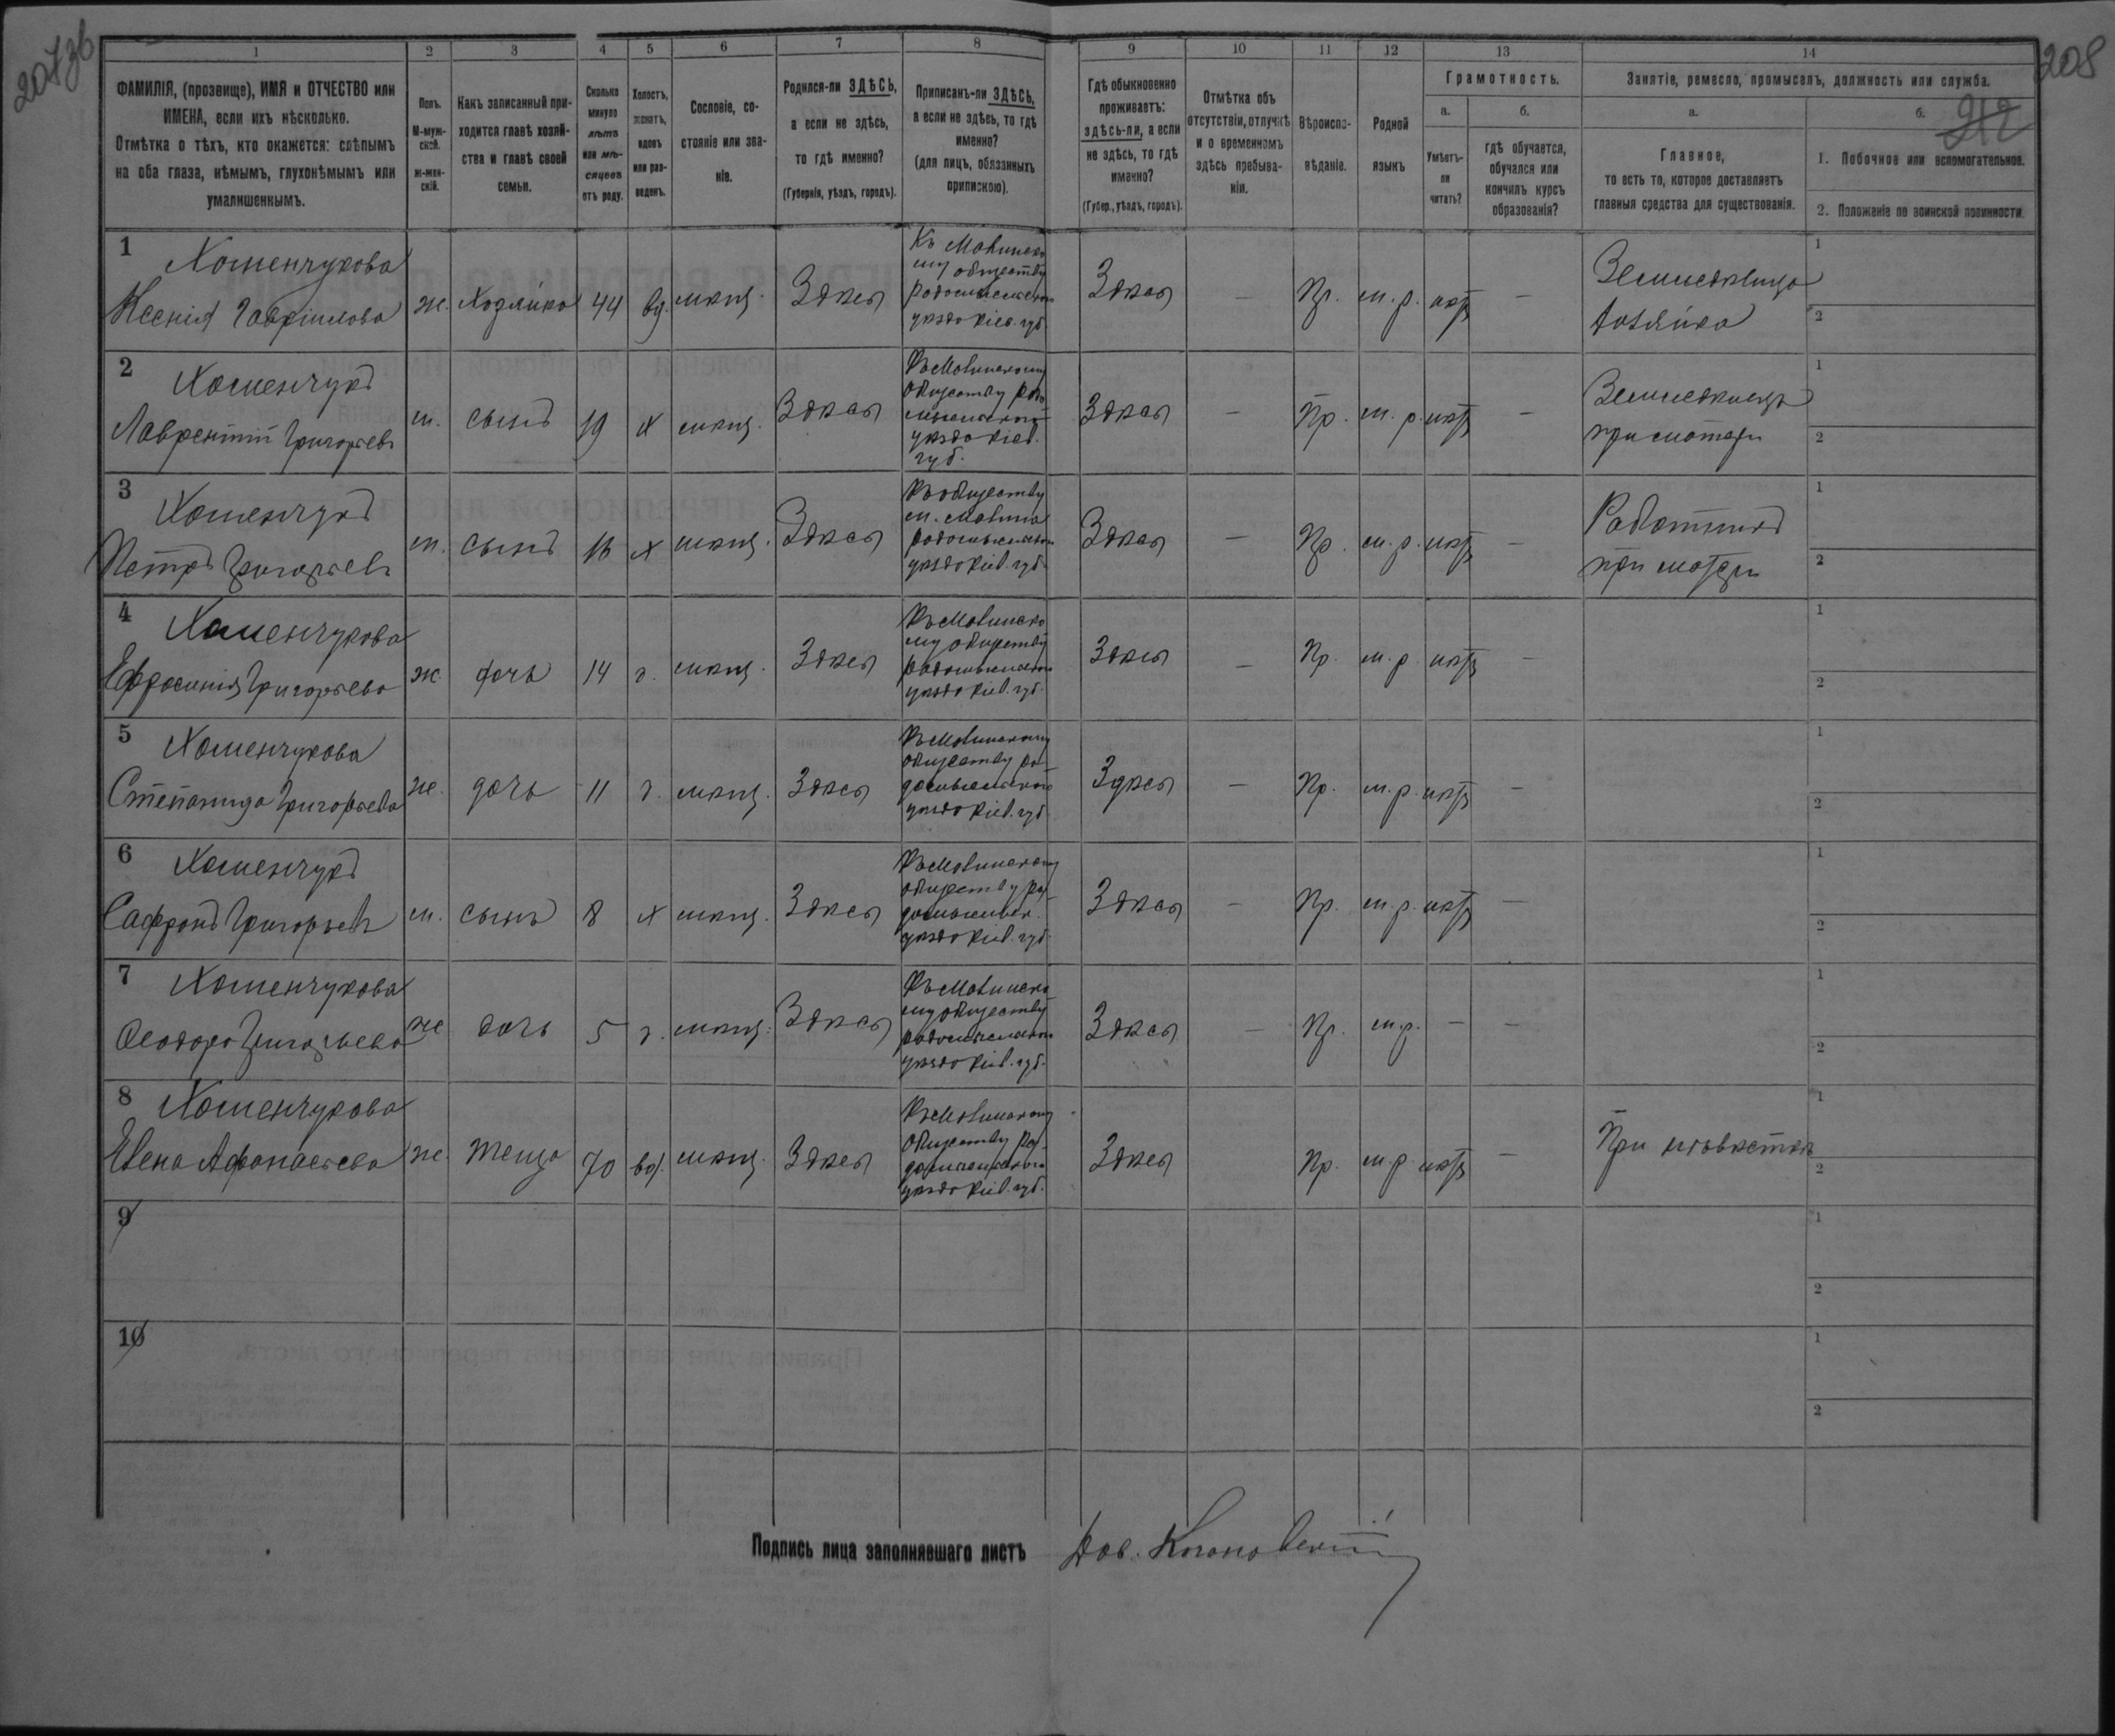 207зв
208
212
1 2 3 4 5 6 7 8 9 10 11 12 13 14
ФАМИЛІЯ, (прозвище), ИМЯ и ОТЧЕСТВО или
ИМЕНА, если ихъ нѣсколько.
Отмѣтка о тѣхъ, кто окажется: слѣпымъ
на оба глаза, нѣмымъ, глухонѣмымъ или
умалишеннымъ.
Полъ.
М-муж-
ской.
ж-жен-
скій.
Какъ записанный при-
ходится главѣ хозяй-
ства и главѣ своей
семьи.
Сколько
минуло
лѣтъ
или мѣ-
сяцевъ
отъ роду.
Холостъ,
женатъ,
вдовъ
или раз-
веденъ.
Сословіе, со-
стояніе или зва-
ніе.
Родился-ли ЗДѢСЬ,
а если не здѣсь,
то гдѣ именно?
(Губернія, уѣздъ, городъ).
Приписанъ-ли ЗДѢСЬ,
а если не здѣсь, то гдѣ
именно?
(для лицъ, обязанныхъ
припискою).
Гдѣ обыкновенно
проживаетъ:
здѣсь-ли, а если
не здѣсь, то гдѣ
именно?
(Губер., уѣздъ, городъ).
Отмѣтка объ
отсутствіи, отлучкѣ
и о временномъ
здѣсь пребыва-
ніи.
Вѣроиспо-
вѣданіе.
Родной
языкъ
Грамотность.
а.
Умѣетъ-
ли
читать?
б.
гдѣ обучается,
обучался или
кончилъ курсъ
образованія?
Занятіе, ремесло, промыселъ, должность или служба.
а.
Главное,
то есть то, которое доставляетъ
главныя средства для существованія.
б.
1. Побочное или вспомогательное.
2. Положеніе по воинской повинности.
1
Хоменчукова
Ксенія Гавріилова
ж. Хозяйка 44 вд. мѣщ. Здѣсь
Къ Мовинско
му обществу
радомысльскаго
уѣзда Кіев. губ
Здѣсь — Пр. м.р. нѣтъ —
Земледѣлица
хозяйка
1
2
2
Хоменчукъ
Лаврентій Григорьевъ
м. сынъ 19 х мѣщ. Здѣсь
Къ Мовинскому
обществу радо
мысльскаго
уѣзда Кіев.
губ.
Здѣсь — Пр. м.р. нѣтъ —
Земледѣлецъ
при матери
1
2
3
Хоменчукъ
Петръ Григорьевъ
м. сынъ 16 х мѣщ. Здѣсь
Къ обществу
м. Мовина
радомысльскаго
уѣзда Кіев. губ.
Здѣсь — Пр. м.р. нѣтъ —
Работникъ
при матери
1
2
4
Хоменчукова
Ефросинія Григорьева
ж. дочь 14 д. мѣщ. Здѣсь
Къ Мовинско
му обществу
радомысльскаго
уѣзда Кіев. губ.
Здѣсь — Пр. м.р. нѣтъ —
1
2
5
Хоменчукова
Степанида Григорьева
ж. дочь 11 д. мѣщ. Здѣсь
Къ Мовинскому
обществу ра-
домысльскаго
уѣзда Кіев. губ.
Здѣсь — Пр. м.р. нѣтъ —
1
2
6
Хоменчукъ
Сафронъ Григорьевъ
м. сынъ 8 х мѣщ. Здѣсь
Къ Мовинскому
обществу ра-
домысльск.
уѣзда Кіев. губ.
Здѣсь — Пр. м.р. нѣтъ —
1
2
7
Хоменчукова
Феодора Григорьева
ж дочь 5 д. мѣщ. Здѣсь
Къ Мовинско
му обществу
радомысльскаго
уѣзда Кіев. губ.
Здѣсь — Пр. м.р. — —
1
2
8
Хоменчукова
Елена Афонасьева
ж. теща 70 вд. мѣщ. Здѣсь
Къ Мовинскому
обществу ра-
домысльскаго
уѣзда Кіев. губ.
Здѣсь Пр. м.р. нѣтъ —
При
1
2
9
1
2
10
1
2
Подпись лица заполнявшаго листъ